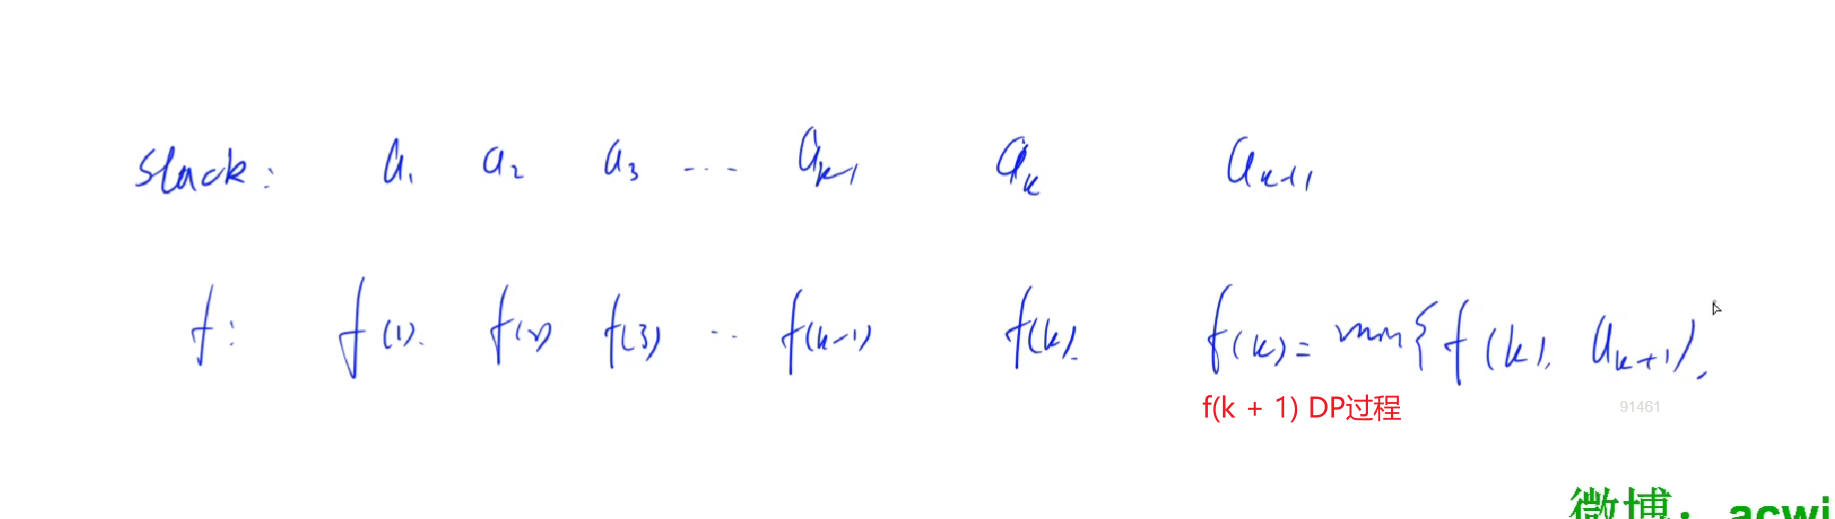 stack: a₁ a₂ a₃ ... aₖ₋₁ aₖ aₖ₊₁
f: f(1). f(2) f(3) .. f(k-1) f(k). f(k)= min{f(k), aₖ₊₁),
f(k + 1) DP过程
91461
微博: acwi